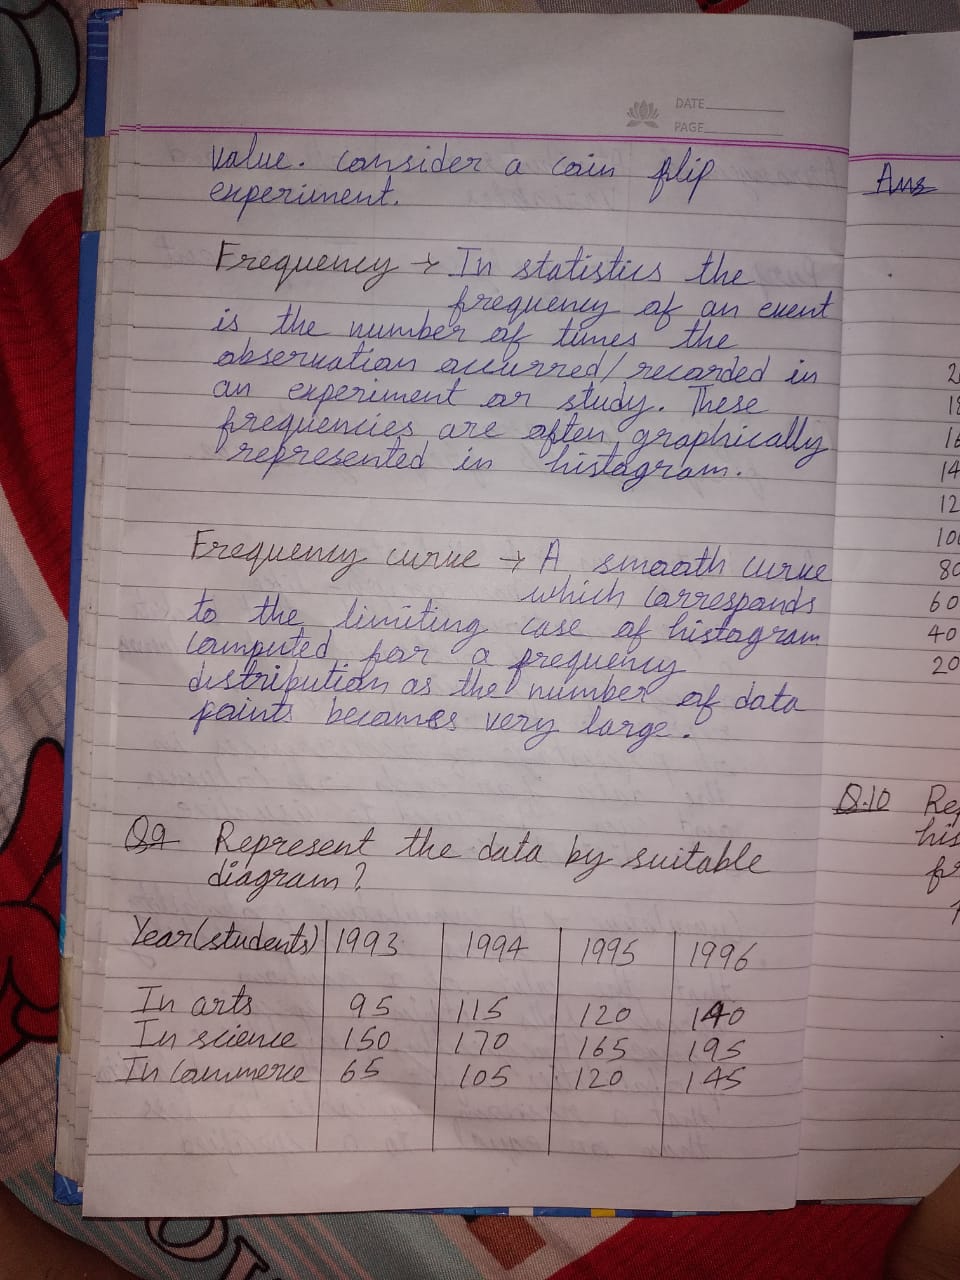 DATE
PAGE
value. consider a coin flip
experiment.
Frequency → In statistics the
frequency of an event
is the number of times the
observation occurred/recorded in
an experiment or study. These
frequencies are often graphically
represented in histogram.
Frequency curve → A smooth curve
which corresponds
to the limiting case of histogram
computed for a frequency
distribution as the number of data
points becomes very large.
Q9 Represent the data by suitable
diagram?
Year(students) 1993 1994 1995 1996
In arts 95 115 120 140
In science 150 170 165 195
In Commerce 65 105 120 145
Ans
18
16
14
12
80
60
40
20
Q.10 Re
his
fr